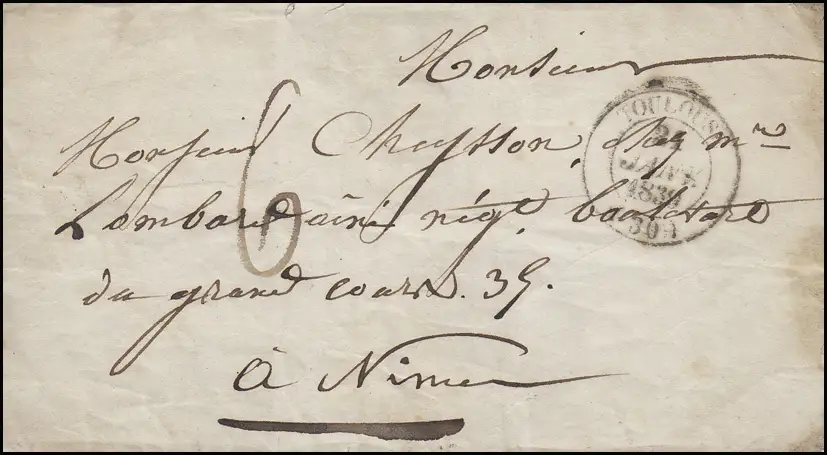 Monsieur
Monsieur Cheysson, chez mr
Lombard aîné négt. boulevard
du grand cours. 39.
à Nimes
6
TOULOUSE
JANV.
(30)